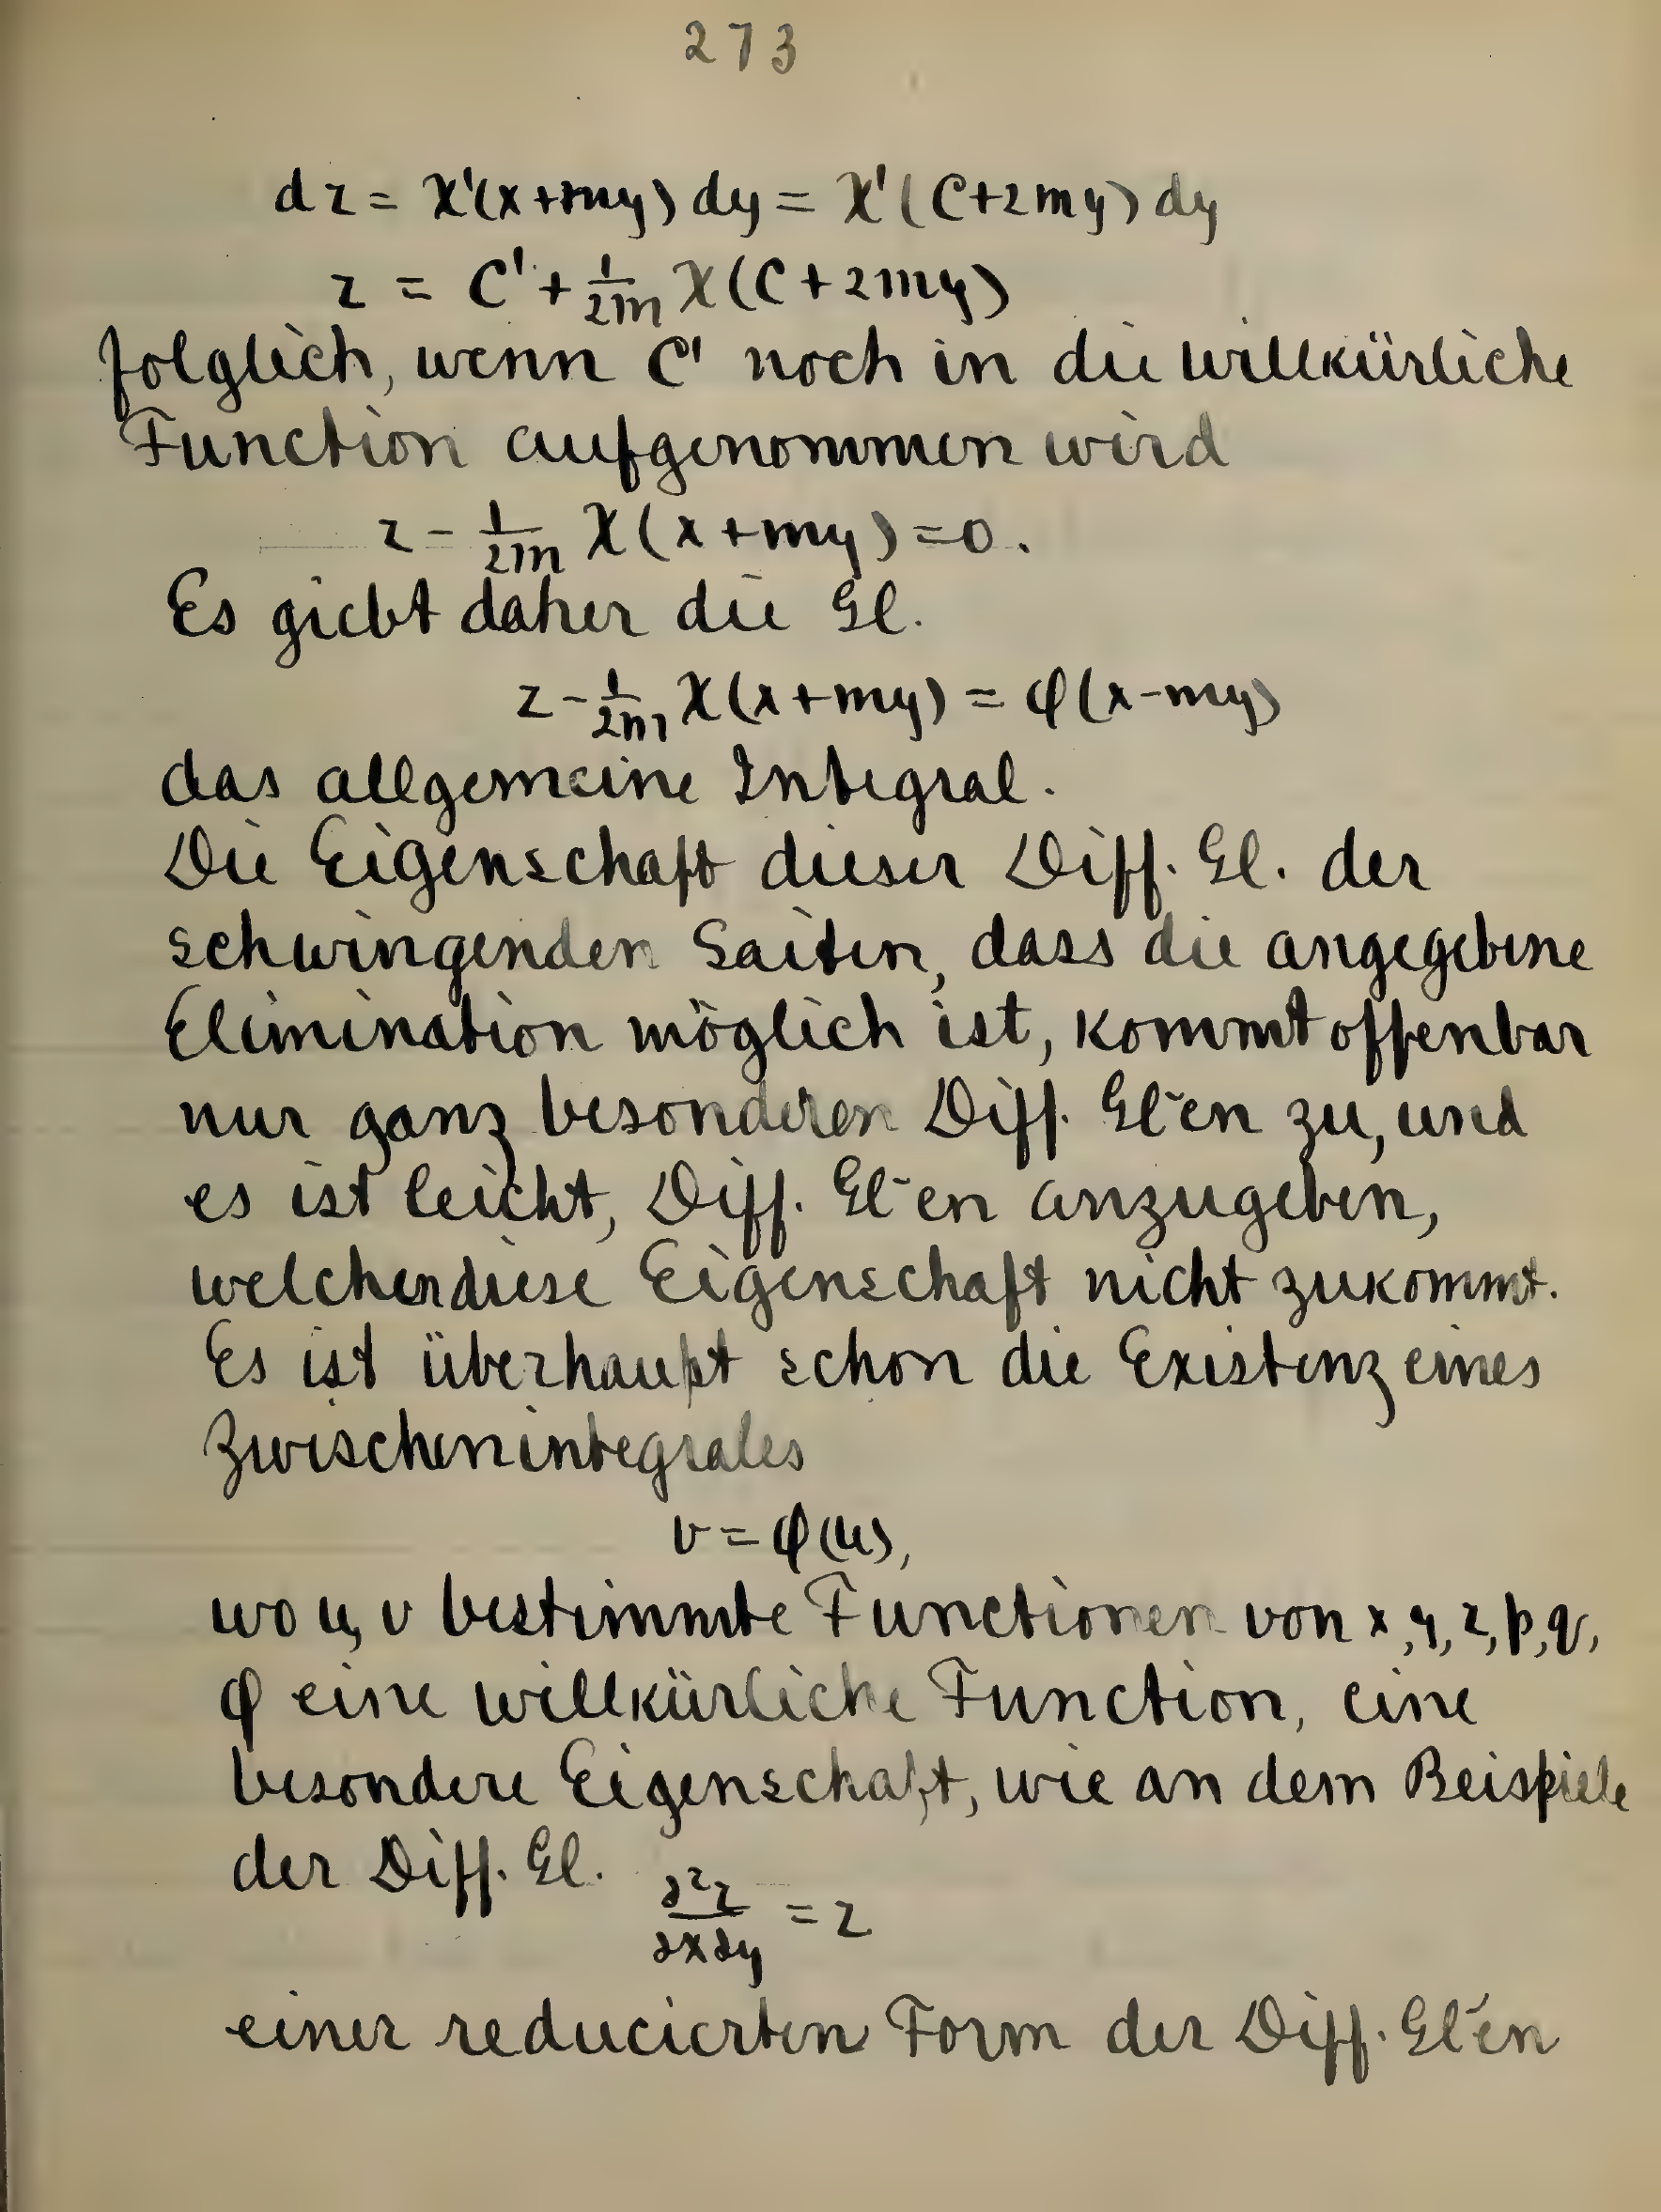 273
dz = χ'(x+my) dy = χ'(C+2my) dy
z = C' + 1/2m χ(C+2my)
folglich, wenn C' noch in die willkürliche
Function aufgenommen wird
z - 1/2m χ(x+my) = 0.
Es giebt daher die Gl.
z - 1/2m χ(x+my) = φ(x-my)
das allgemeine Integral.
Die Eigenschaft dieser Diff. Gl. der
schwingenden Saiten, dass die angegebene
Elimination möglich ist, kommt offenbar
nur ganz besonderen Diff. Gl-en zu, und
es ist leicht, Diff. Gl-en anzugeben,
welchen diese Eigenschaft nicht zukommt.
Es ist überhaupt schon die Existenz eines
Zwischenintegrales
v = φ(u),
wo u, v bestimmte Functionen von x, y, z, p, q,
φ eine willkürliche Function, eine
besondere Eigenschaft, wie an dem Beispiele
der Diff. Gl. ∂²z/∂x∂y = z
einer reducierten Form der Diff. Gl-en